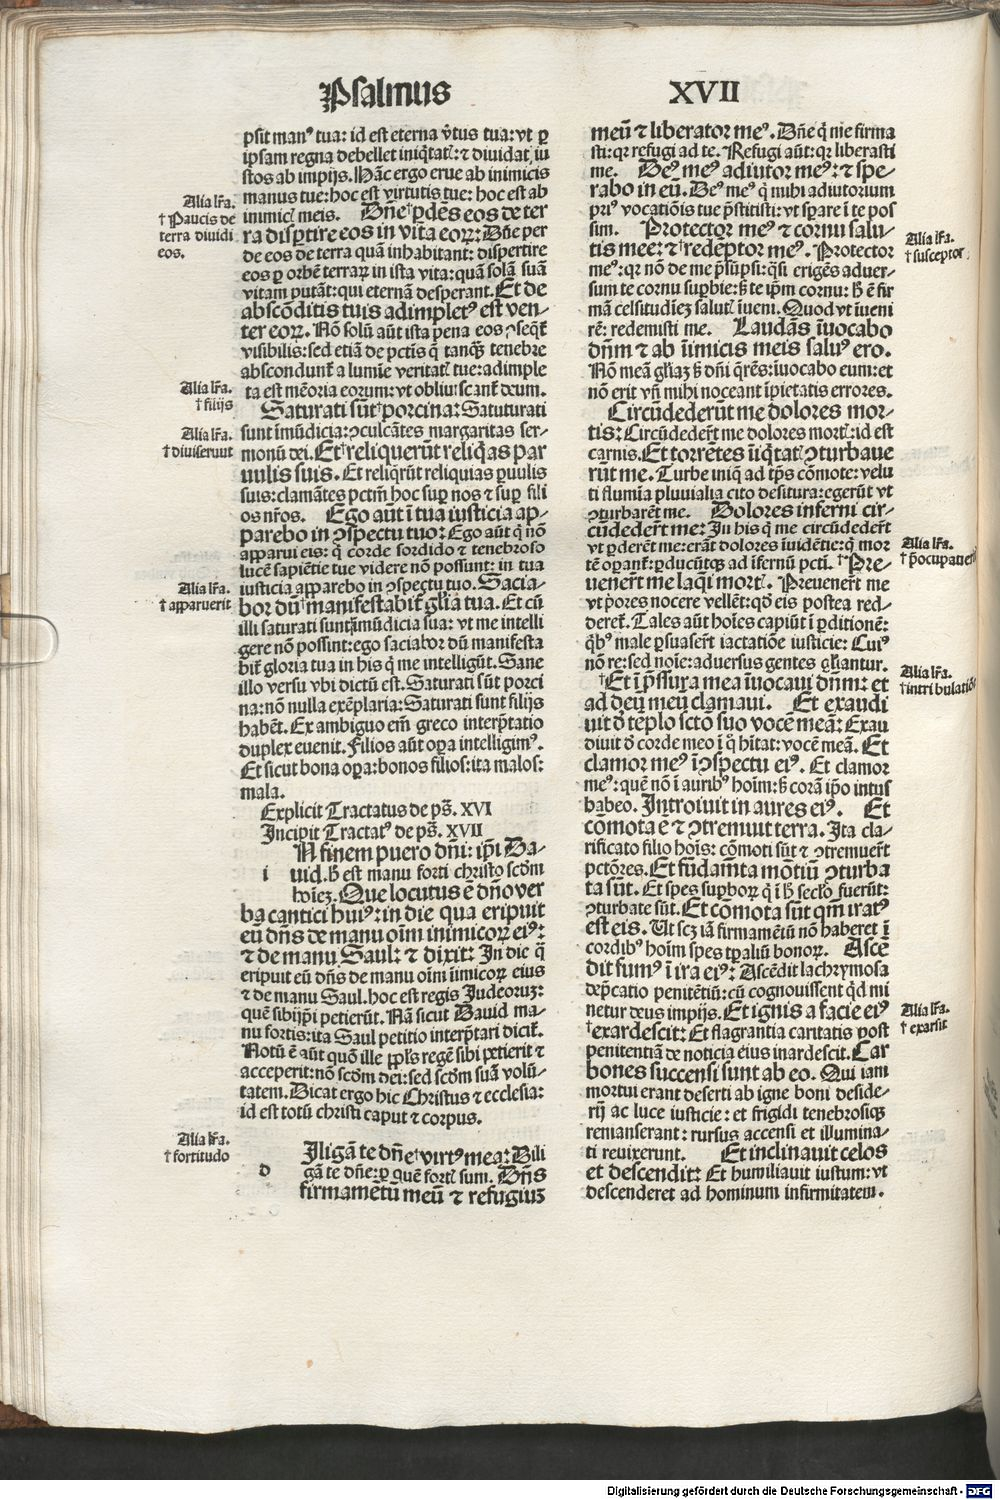 Psalmus XVII
psit manꝰ tua: id est eterna v̄tus tua: vt ꝑ
ipsam regna debellet iniq̄tatꝭ: ⁊ diuidat iu
stos ab impijs. Hāc ergo erue ab inimicis
manus tue: hoc est virtutis tue: hoc est ab
inimicꝭ meis. Dn̄e †ꝑdēs eos de ter
ra disꝑtire eos in vita eoꝝ: Dn̄e per
de eos de terra quā inhabitant: dispertire
eos ꝑ orbē terraꝝ in ista vita: quā solā suā
vitam putāt: qui eternā desperant. Et de
abscōditis tuis adimpletꝰ est ven-
ter eoꝝ. Nō solū aūt ista pena eos ꝯseqͭ
visibilis: sed etiā de pctīs q̄ tanqꝫ tenebre
abscondunt̉ a lumīe veritatꝭ tue: adimple
ta est mēoria eorum: vt obliuiscant̉ deum.
Saturati sūt †porcina: Satuturati
sunt īmūdicia: ꝯculcātes margaritas ser-
monū dei. Et †reliquerūt reliq̄as par
uulis suis. Et reliq̄rūt reliquias ꝑuulis
suis: clamātes pctm̄ hoc suꝑ nos ⁊ suꝑ fili
os nr̄os. Ego aūt ī tua iusticia ap-
parebo in ꝯspectu tuo: Ego aūt q̄ nō
apparui eis: q̄ corde sordido ⁊ tenebroso
lucē sapiētie tue videre nō possunt: in tua
iusticia apparebo in ꝯspectu tuo. Sacia-
bor dū †manifestabit̉ gl̄ia tua. Et cū
illi saturati sunt īmūdicia sua: vt me intelli
gere nō possint: ego saciabor dū manifesta
bit̉ gloria tua in his q̄ me intelligūt. Sane
illo versu vbi dictū est. Saturati sūt porci
na: nō nulla exēplaria: Saturati sunt filijs
habēt. Ex ambiguo em̄ greco interp̄tatio
duplex euenit. Filios aūt oꝑa intelligimꝰ.
Et sicut bona oꝑa: bonos filios: ita malos:
mala.
Explicit Tractatus de ps̄. XVI
Incipit Tractatꝰ de ps̄. XVII
i N finem puero dn̄i: ip̄i Da-
uid. h̄ est manu forti christo scd̄m
hoīeꝫ. Que locutus ē dn̄o ver
ba cantici huiꝰ: in die qua eripuit
eū dn̄s de manu oīm inimicoꝝ eiꝰ:
⁊ de manu Saul: ⁊ dixit: In die q̄
eripuit eū dn̄s de manu oīm īimicoꝝ eius
⁊ de manu Saul. hoc est regis Iudeoruꝫ:
quē sibiip̄i petierūt. Nā sicut Dauid ma-
nu fortis: ita Saul petitio interp̄tari dicit̉.
Notū ē aūt quō ille pp̄ls regē sibi petierit ⁊
acceperit: nō scd̄m dei: sed scd̄m suā volū-
tatem. Dicat ergo hic Christus ⁊ ecclesia:
id est totū christi caput ⁊ corpus.
d Iligā te dn̄e †virtꝰ mea: Dili
gā te dn̄e: ꝑ quē fortꝭ sum. Dn̄s
firmamētū meū ⁊ refugiuꝫ
Alia lr̄a.
† Paucis de
terra diuidi
eos.
Alia lr̄a.
† filijs
Alia lr̄a.
† diuiserunt
Alia lr̄a.
† apparuerit
Alia lr̄a.
† fortitudo
meū ⁊ liberator meꝰ. Dn̄e q̄ me firma
sti: qr refugi ad te. Refugi aūt: qr liberasti
me. Deꝰ meꝰ adiutor meꝰ: ⁊ spe-
rabo in eū. Deꝰ meꝰ q̄ mihi adiutorium
priꝰ vocatiōis tue p̄stitisti: vt sꝑare ī te pos
sum. Protector meꝰ ⁊ cornu salu-
tis mee: ⁊ †redēptor meꝰ. Protector
meꝰ: qr nō de me p̄sūpsi: q̄si erigēs aduer-
sum te cornu suꝑbie: sꝫ te ip̄m cornu: h̄ ē fir
mā celsitudieꝫ salutꝭ iueni. Quod vt iueni
rē: redemisti me. Laudās īuocabo
dn̄m ⁊ ab īimicis meis saluꝰ ero.
Nō meā gl̄iaꝫ sꝫ dn̄i q̄rēs: īuocabo eum: et
nō erit vn̄ mihi noceant īpietatis errores.
Circūdederūt me dolores mor-
tis: Circūdeder̄t me dolores mortꝭ: id est
carnis. Et torrētes īiq̄tatꝭ ꝯturbaue
rūt me. Turbe iniq̄ ad tp̄s cōmote: velu
ti flumīa pluuialia cito desitura: egerūt vt
ꝯturbarēt me. Dolores inferni cir-
cūdeder̄t me: In his q̄ me circūdeder̄t
vt ꝑderēt me: erāt dolores īuidētie: q̄ mor
tē oꝑant̉: ꝑducūtqꝫ ad ifernū pcti. †Pre-
uener̄t me laq̄i mortꝭ. Preuener̄t me
vt p̄ores nocere vellēt: qd̄ eis postea red-
deret̉. Tales aūt hoīes capiūt ī ꝑditionē:
q̄bꝰ male ꝑsuaser̄t iactatiōe iusticie: Cuiꝰ
nō re: sed noīe: aduersus gentes gl̄iantur.
†Et ī p̄ssura mea īuocaui dn̄m: et
ad deū meū clamaui. Et exaudi
uit d̄ tēplo sctō suo vocē meā: Exau
diuit d̄ corde meo ī q̄ hītat: vocē meā. Et
clamor meꝰ ī ꝯspectu eiꝰ. Et clamor
meꝰ: quē nō ī auribꝰ hoīm: sꝫ corā ip̄o intus
habeo. Introiuit in aures eiꝰ. Et
cōmota ē ⁊ ꝯtremuit terra. Ita cla-
rificato filio hoīs: cōmoti sūt ⁊ ꝯtremuer̄t
pctōres. Et fūdam̄ta mōtiū ꝯturba
ta sūt. Et spes suꝑboꝝ q̄ ī h̄ seclo fuerūt:
ꝯturbate sūt. Et cōmota sūt qm̄ iratꝰ
est eis. Ut scꝫ iā firmamētū nō haberet ī
cordibꝰ hoīm spes tp̄aliū bonoꝝ. Ascē
dit fumꝰ ī ira eiꝰ: Ascēdit lachrymosa
dep̄catio penitētiū: cū cognouissent qd̄ mi
netur deus impijs. Et ignis a facie eiꝰ
†exardescit: Et flagrantia caritatis post
penitentiā de noticia eius inardescit. Car
bones succensi sunt ab eo. Qui iam
mortui erant deserti ab igne boni deside-
rij ac luce iusticie: et frigidi tenebrosiqꝫ
remanserant: rursus accensi et illumina-
ti reuixerunt. Et inclinauit celos
et descendit: Et humiliauit iustum: vt
descenderet ad hominum infirmitatem.
Alia lr̄a.
† susceptor
Alia lr̄a.
† p̄ocupauer̄
Alia lr̄a.
† in tribulatiōe
Alia lr̄a.
† exarsit
Digitalisierung gefördert durch die Deutsche Forschungsgemeinschaft - DFG